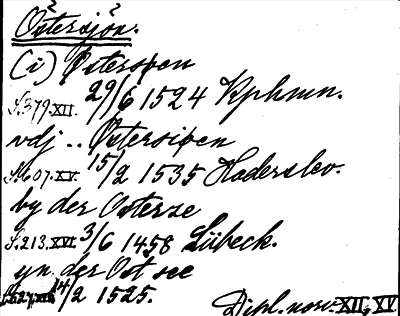 Östersjön.
(i) Østersøen
S.379.XII. 29/6 1524 Kphmn.
vdj .. Østersiøen
S.607.XV. 15/2 1535 Haderslev.
by der Osterze
S.213.XVI. 3/6 1458 Lübeck.
yn der Ost see
14/2 1525.
Dipl. norv. XII, XV